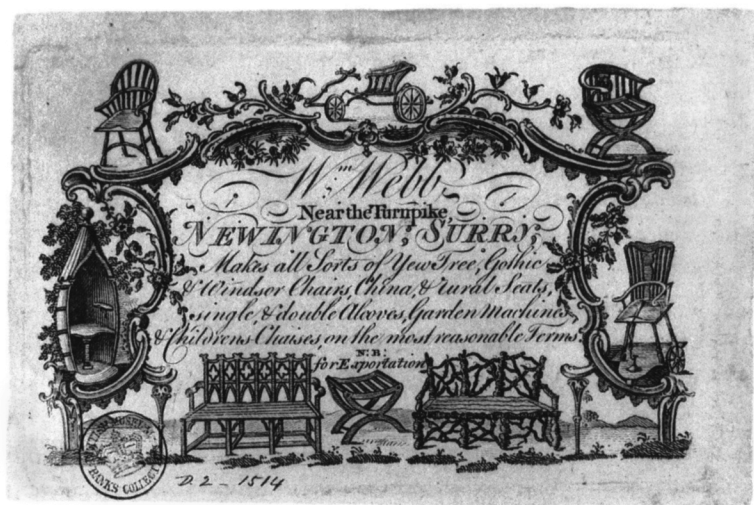 Wm. Webb,
Near the Turnpike,
NEWINGTON; SURRY;
Makes all Sorts of Yew Tree, Gothic
& Windsor Chairs, China, & rural Seats,
single, & double Alcoves, Garden Machines,
& Childrens Chaises, on the most reasonable Terms.
N:B:
for Exportation
BRITISH MUSEUM
BANKS COLLECT
D.2 - 1514